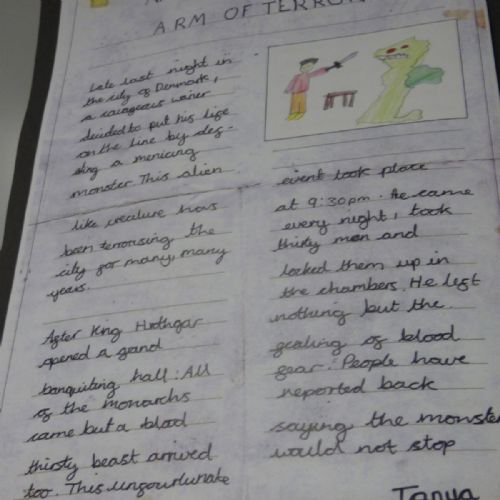 ARM OF TERROR
Late last night in
the city of Denmark,
a
decided to put his lige
on the line by des-
ing a menicing
monster. This alien
like creature has
been terrorising the
city gor many, many
years.
Agter King Hrothgar
opened a grand
banquiting hall. All
og the monarchs
came but a blood
thirsty beast arrived
too. This ungourtunate
event took place
at 9:30pm. He came
every night, took
thirty men and
locked them up in
the chambers. He legt
nothing but the
of blood
gear. People have
reported back
saying the monster
would not stop
Tanya